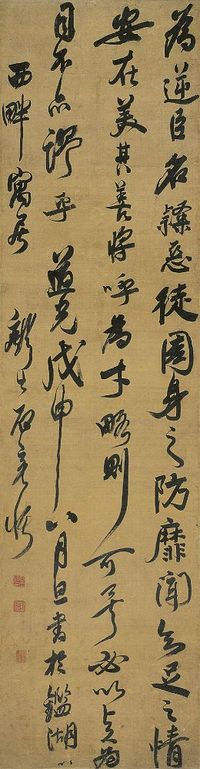 為逆臣名隸惡徒周身之防靡聞知足之情
安在美其善將呼為才略則可矣必以貞為
目不亦謬乎 道光戊申八月旦書於鑑湖
西畔寓居